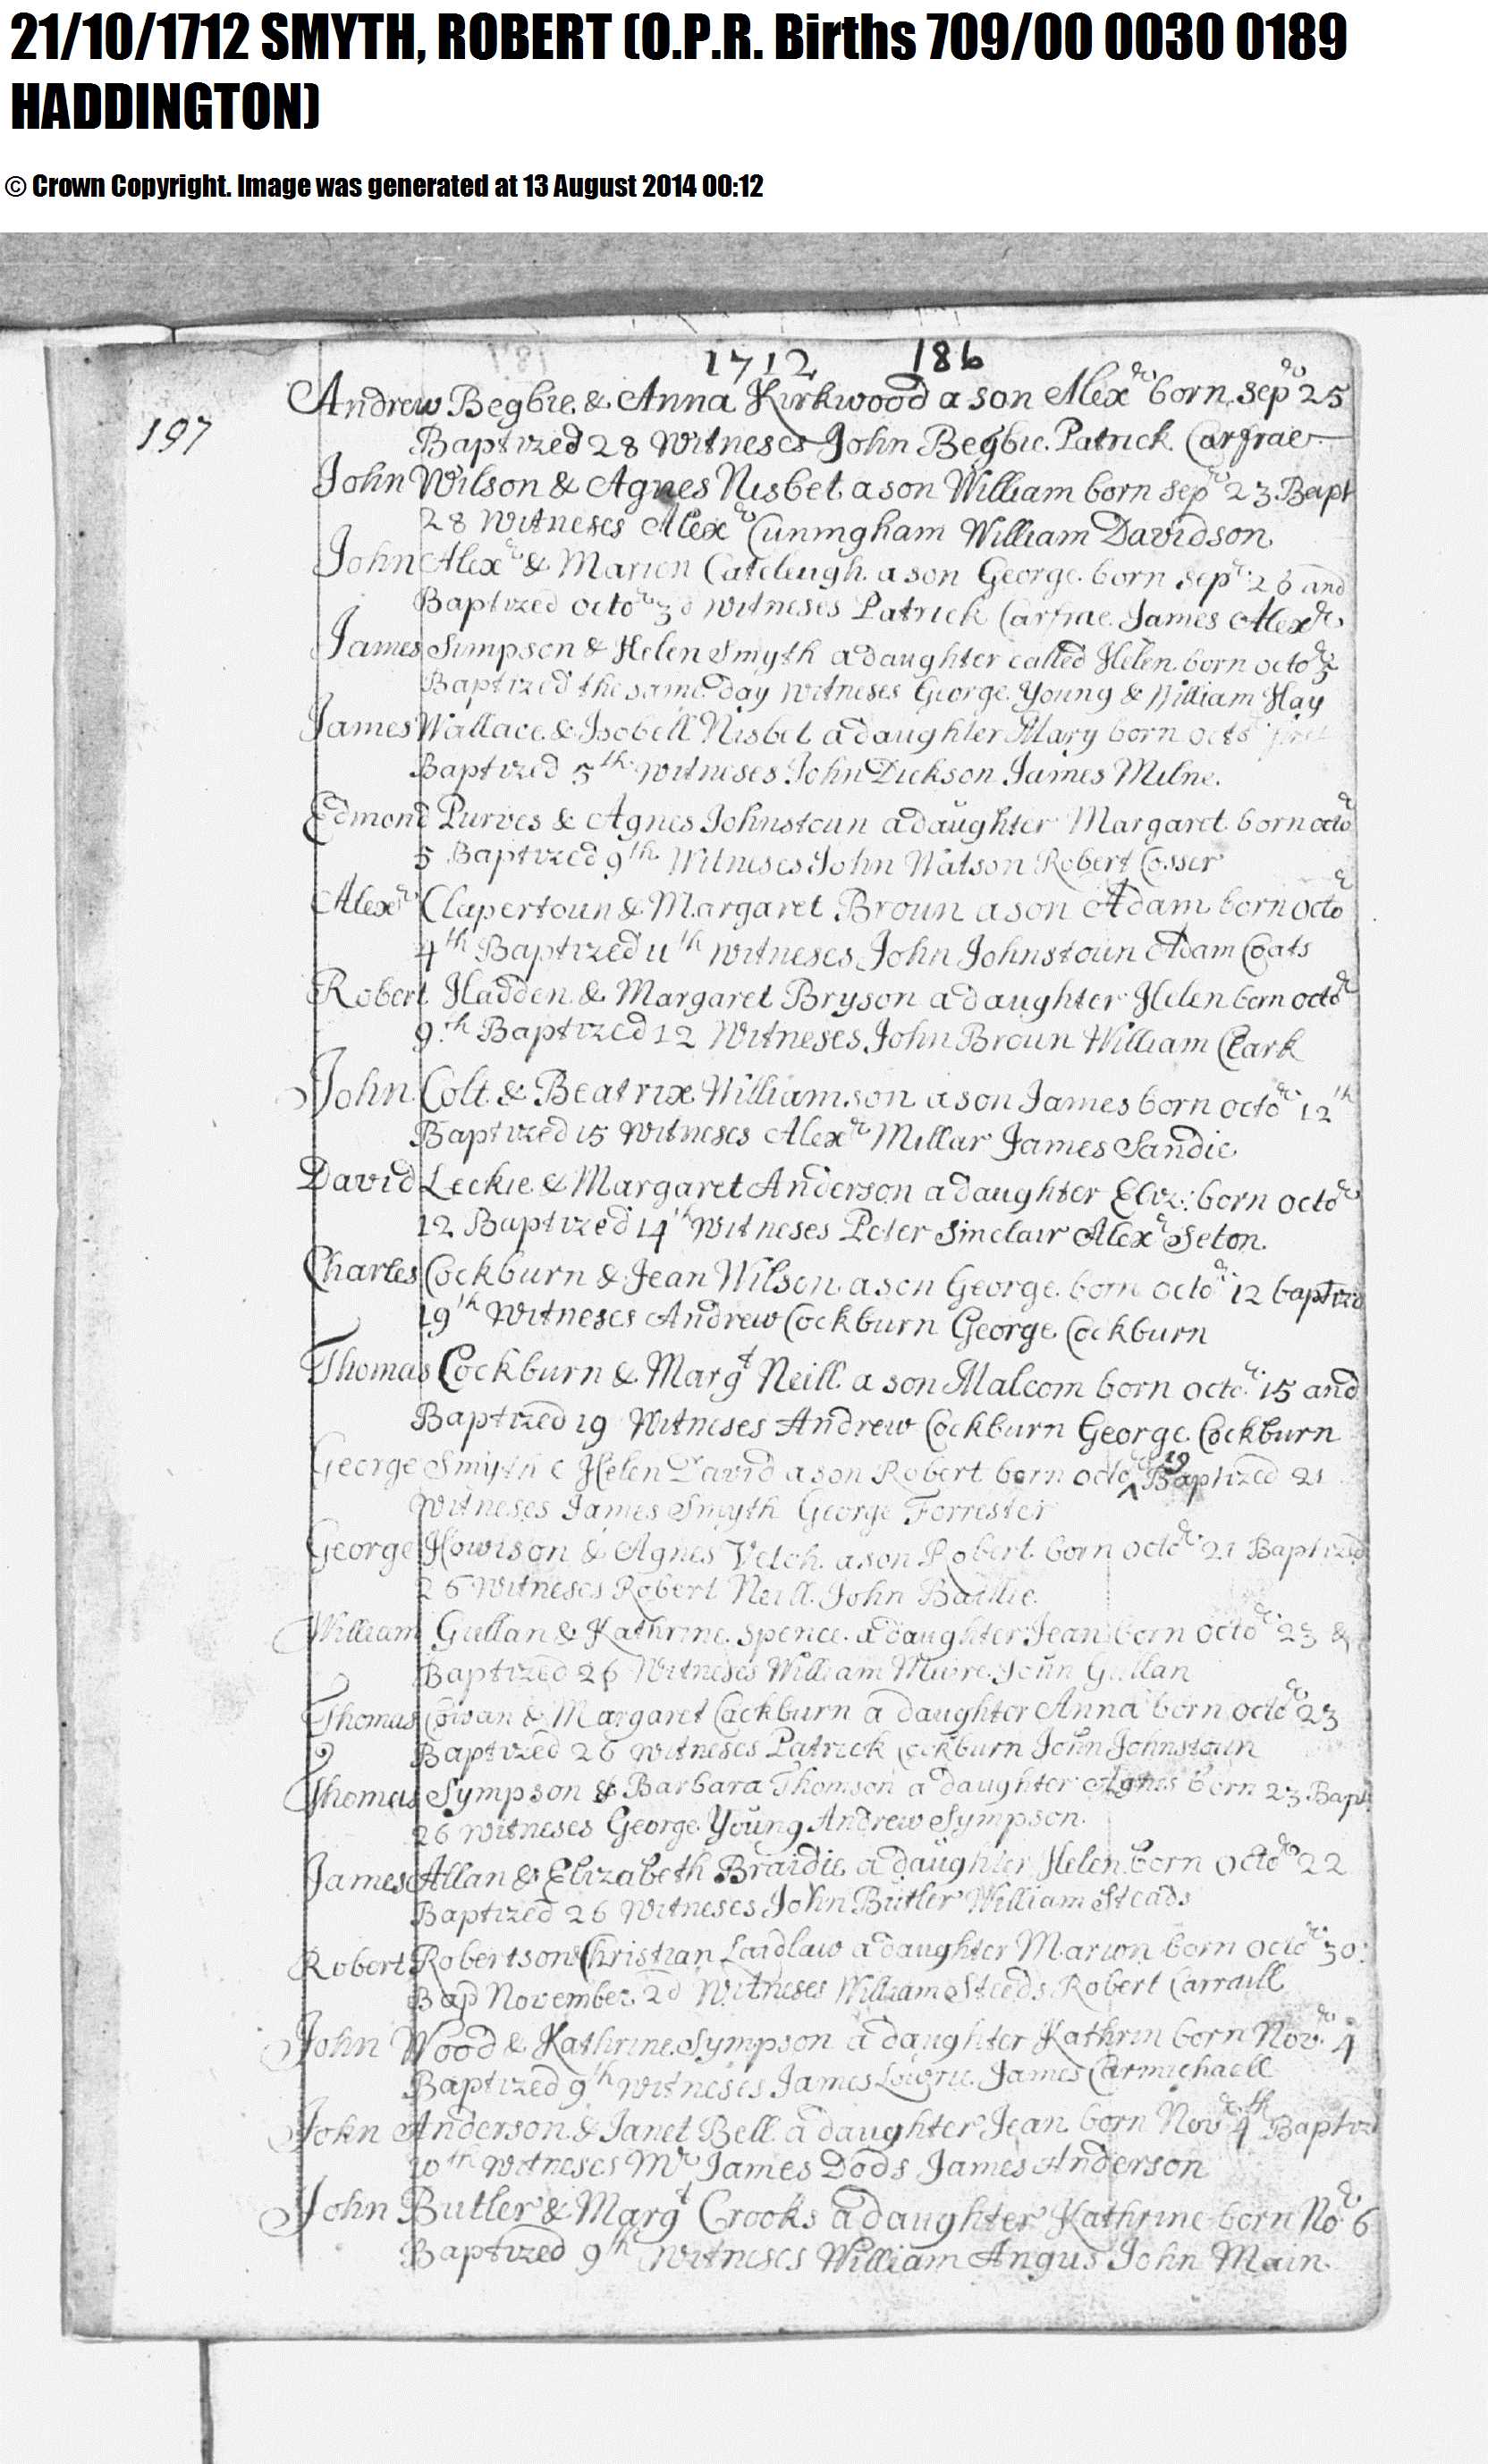 21/10/1712 SMYTH, ROBERT (O.P.R. Births 709/00 0030 0189
HADDINGTON)
© Crown Copyright. Image was generated at 13 August 2014 00:12
1712 186
197
Andrew Begbie & Anna Kirkwood a son Alexr born sepr 25
Baptized 28 Witneses John Begbie Patrick Carfrae
John Wilson & Agnes Nisbet a son William born sepr 23 Bapt
28 Witneses Alexr Cuningham William Davidson
John Alexr & Marion a son George born sepr 26 and
Baptized octor 3d witneses Patrick Carfrae James Alexr
James Simpson & Helen Smyth a daughter called Helen born octor 5
Baptized the same day witneses George Young & William Hay
James Wallace & Isobell Nisbet a daughter Mary born octo
Baptized 5th witneses John Dickson James Milne
Edmond Purves & Agnes Johnstoun a daughter Margaret born octor
5 Baptized 9th Witneses John Watson Robert Cosser
Alexr Clapertoun & Margaret Broun a son Adam born octor
4th Baptized 11th witneses John Johnstoun Adam Coats
Robert Hadden & Margaret Bryson a daughter Helen born octor
9th Baptized 12 Witneses John Broun William Clark
John Colt & Beatrix Williamson a son James born octor 12th
Baptized 15 witneses Alexr Millar James Sandie
David Leckie & Margaret Anderson a daughter Eliz: born octor
12 Baptized 14th Witneses Peter Sinclair Alexr Seton
Charles Cockburn & Jean Wilson a son George born octor 12 baptizd
19th Witneses Andrew Cockburn George Cockburn
Thomas Cockburn & Margt Neill a son Malcom born octor 15 and
Baptized 19 Witneses Andrew Cockburn George Cockburn
George Smyth & Helen David a son Robert born octor 19 Baptized 21
Witneses James Smyth George Forrester
George Howison & Agnes Vetch a son Robert born octor 21 Baptized
26 Witneses Robert Neill John Baillie
William Gullan & Kathrine Spence a daughter Jean born octor 23 &
Baptized 26 Witneses William Muire John Gullan
Thomas Cowan & Margaret Cockburn a daughter Anna born octor 23
Baptized 26 witneses Patrick Cockburn John Johnstoun
Thomas Sympson & Barbara Thomson a daughter Agnes born 23 Bapt
26 witneses George Young Andrew Sympson
James Allan & Elizabeth Braidie a daughter Helen born octor 22
Baptized 26 Witneses John Butler William Steads
Robert Robertson & Christian Laidlaw a daughter Marion born octor 30
Bap November 2d Witneses William Steeds Robert Carraill
John Wood & Kathrine Sympson a daughter Kathrin born Novr 4
Baptized 9th witneses James Lowrie James Carmichaell
John Anderson & Janet Bell a daughter Jean born Novr 4th Baptizd
10th witneses Mr James Dods James Anderson
John Butler & Margt Crooks a daughter Kathrine born Nor 6
Baptized 9th Witneses William Angus John Main